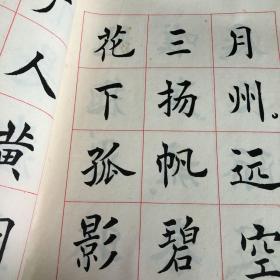 人
黄
花三月
下扬州。
孤帆远
影碧空